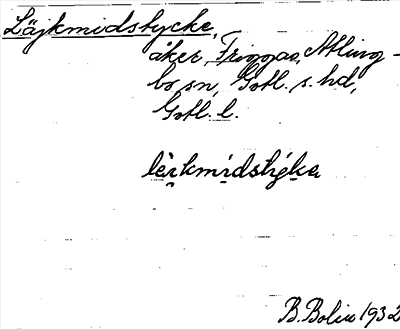 Läjkmidstycke,
åker, Friggas, Atling-
bo sn, Gotl. s. hd,
Gotl. l.
lèikmidstýka
B. Bolin 1932